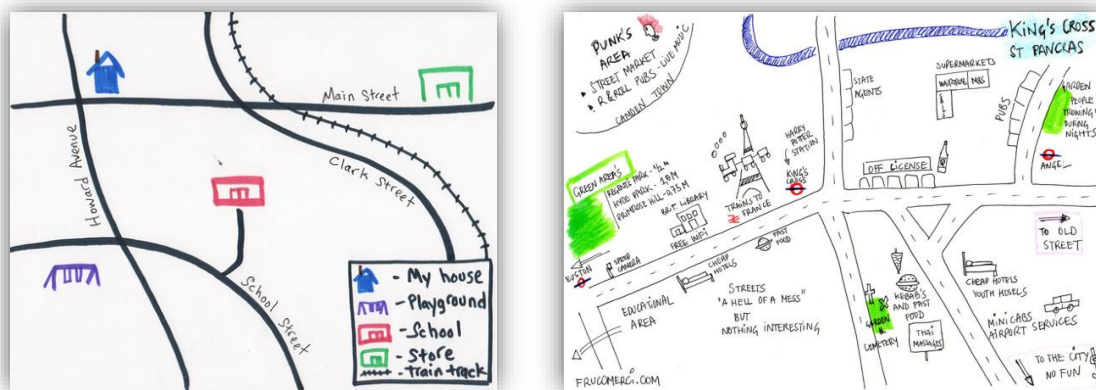 Main Street
Howard Avenue
Clark Street
School Street
- My house
- Playground
- School
- Store
- train track
PUNK'S
AREA
STREET MARKET
R&ROLL PUBS - LIVE MUSIC
CAMDEN TOWN
KING'S CROSS
ST PANCRAS
STATE
AGENTS
SUPERMARKETS
WAITROSE
M&S
PUBS
GARDEN
PEOPLE
DURING
NIGHTS
ANGE
HARRY
POTTER
STATION
KING'S
CROSS
OFF LICENSE
GREEN AREAS
REGENTS PARK - 1/2 M
HYDE PARK - 1,8 M
PRIMROSE HILL - 1,75 M
BRIT. LIBRARY
FREE WIFI
TRAINS TO
FRANCE
EUSTON
SPEED
CAMERA
FAST
FOOD
CHEAP
HOTELS
EDUCATIONAL
AREA
STREETS
"A HELL OF A MESS"
BUT
NOTHING INTERESTING
GARDEN
CEMETERY
KEBAB'S
AND FAST
FOOD
THAI
MASSAGES
TO OLD
STREET
CHEAP HOTELS
YOUTH HOSELS
MINICABS
AIRPORT SERVICES
TO THE CITY
NO FUN
FRUCOMERCI.COM